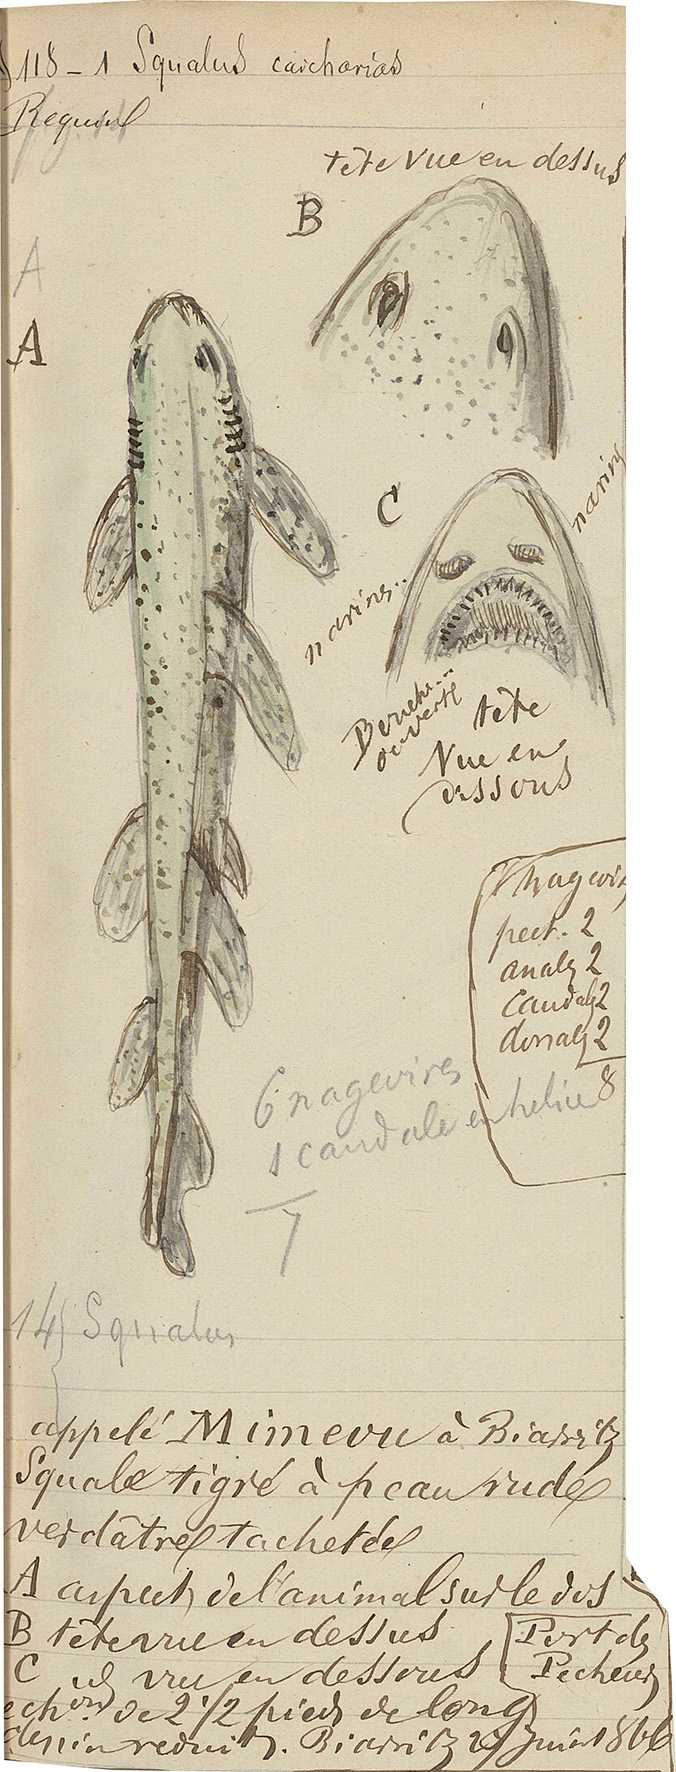 118 - 1 Squalus carcharias
Requin
tête vue en dessus
B
A
A
C
narine
narines..
Bouche...
ouverte
tête
Vue en
dessous
Nageoires
pect. 2
anales 2
Caudales 2
dorsales 2
8
6 nageoires
1 caudale en helice
7
14 Squalus
appelé Mimevu à Biarritz
Squale tigré à peau rude
verdâtre tachetée
A aspect de l'animal sur le dos
B tête vue en dessus
C id vu en dessous
Port des
Pecheurs
echon. de 2 1/2 pieds de long
dessin reduit. Biarritz 1866